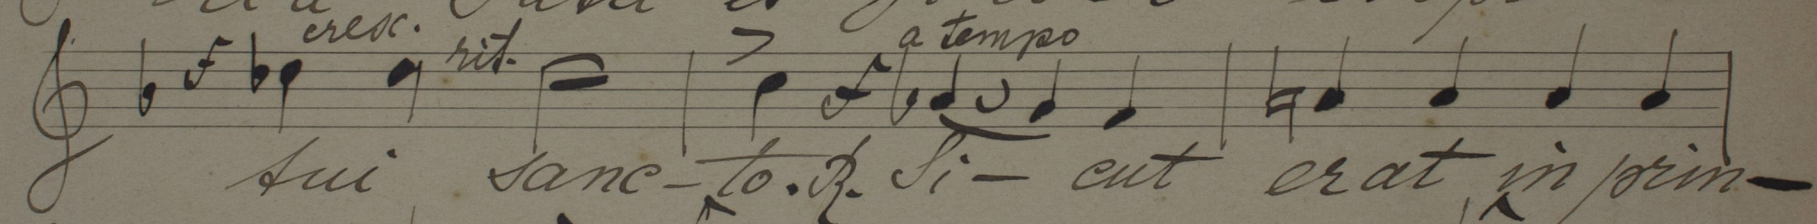 cresc. rit. a tempo
tui sanc-to. R. Si-cut erat in prin-